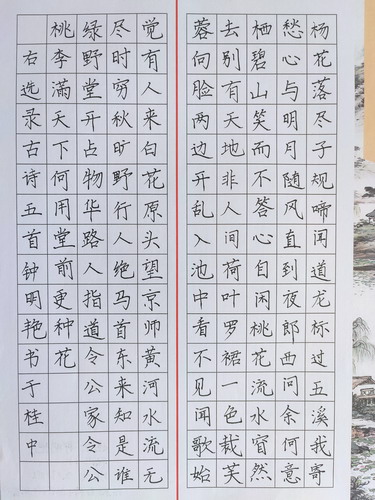 杨花落尽子规啼闻道龙标过五溪我寄
愁心与明月随风直到夜郎西问余何意
栖碧山笑而不答心自闲桃花流水窅然
去别有天地非人间荷叶罗裙一色裁芙
蓉向脸两边开乱入池中看不见闻歌始
觉有人来白花原头望京师黄河水流无
尽时穷秋旷野行人绝马首东来知是谁
绿野堂开占物华路人指道令公家令公
桃李满天下何用堂前更种花
右选录古诗五首钟明艳书于桂中